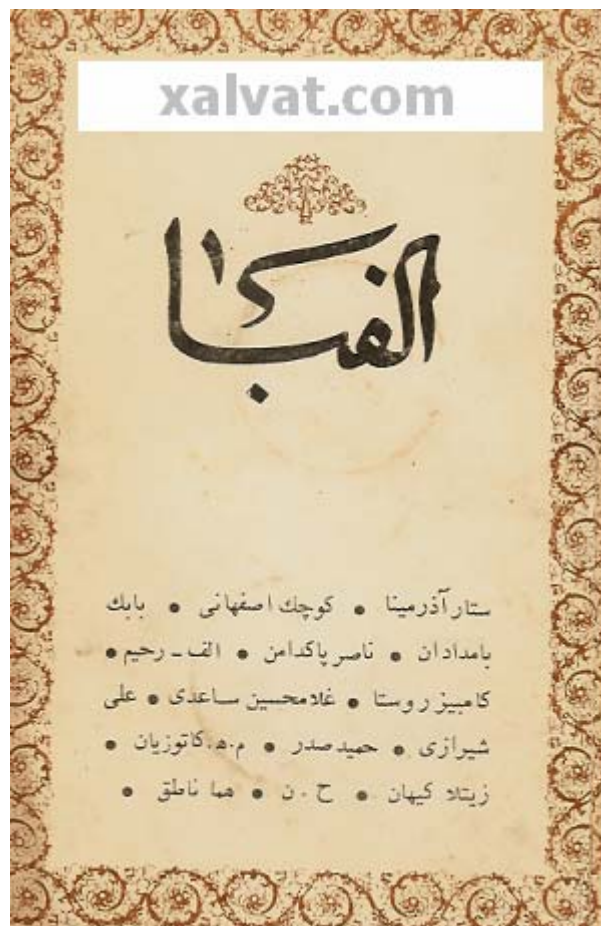 xalvat.com
الفبا
ستار آذرمینا • کوچك اصفهانی • بابك
بامدادان • ناصر پاکدامن • الف ـ رحیم •
کامبیز روستا • غلامحسین ساعدی • علی
شیرازی • حمید صدر • م.ه.کاتوزیان •
زیتلا کیهان • ح . ن • هما ناطق •